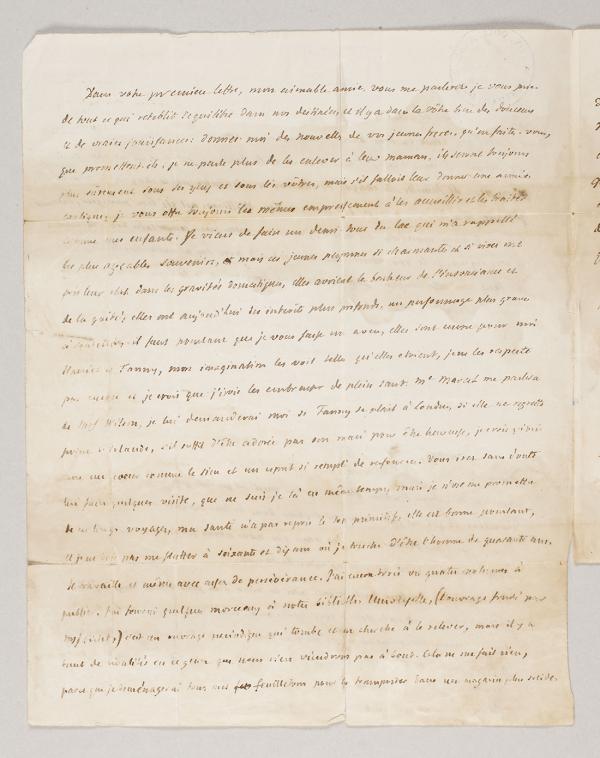 Dans votre premiere lettre, mon aimable amie, vous me parlerez je vous prie
de tout ce qui retablit l'equilibre dans nos destinées, et il y a dans la vôtre bien des douceurs
et de vraies jouissances: donnez moi des nouvelles de vos jeunes freres, qu'en faites vous,
que promettent-ils; je ne parle plus de les enlever à leur maman, ils seront toujours
plus surement sous ses yeux et sous les vôtres, mais s'il falloit leur donner une année
je vous offre toujours les mêmes empressement à les accueillir et les traiter
comme mes enfants. Je viens de faire un demi-tour du lac qui m'a rappellé
les plus agréables souvenirs, mais ces jeunes si charmantes et si vives ont
pris leur etat dans les gravités domestiques, elles avoient le bonheur de l'insouciance et
de la gaité; elles ont aujourd'hui des interêts plus profonds, un personnage plus grave
à il faut pourtant que je vous fasse un aveu, elles sont encore pour moi
et Fanny, mon imagination les voit telles qu'elles etoient, je ne les respecte
pas encore et je crois que j'irois les embrasser de plein saut. Mr Marcet me parlera
de Mrs Wilson, je lui demanderai moi si Fanny se plait à Londres, si elle ne regrette
point l'Irlande, s'il suffit d'être adorée par son mari pour être heureuse, je crois qu'oui
avec un coeur comme le sien et un esprit si rempli de ressources. Vous irez sans doute
lui faire quelques visites, que ne suis je là en même temps, mais je n'ose me promettre
de longs voyages, ma santé n'a pas repris le ton primitif, elle est bonne pourtant,
et je ne dois pas me flatter à soixante et dix ans où je touche d'être l'homme de quarante ans.
Je travaille et même avec assez de persévérance. J'ai encore trois ou quatre volumes à
publier. J'ai fourni quelques morceaux à notre Bibliothe Universelle, (l'ouvrage fondé par
c'est un ouvrage periodique qui tombe et on cherche à le relever, mais il y a
tant de rivalités en ce genre que nous n'en viendrons pas à bout. Cela ne me fait rien,
parce que je déménagerai tous mes feuilletons pour les transporter dans un magasin plus solide.